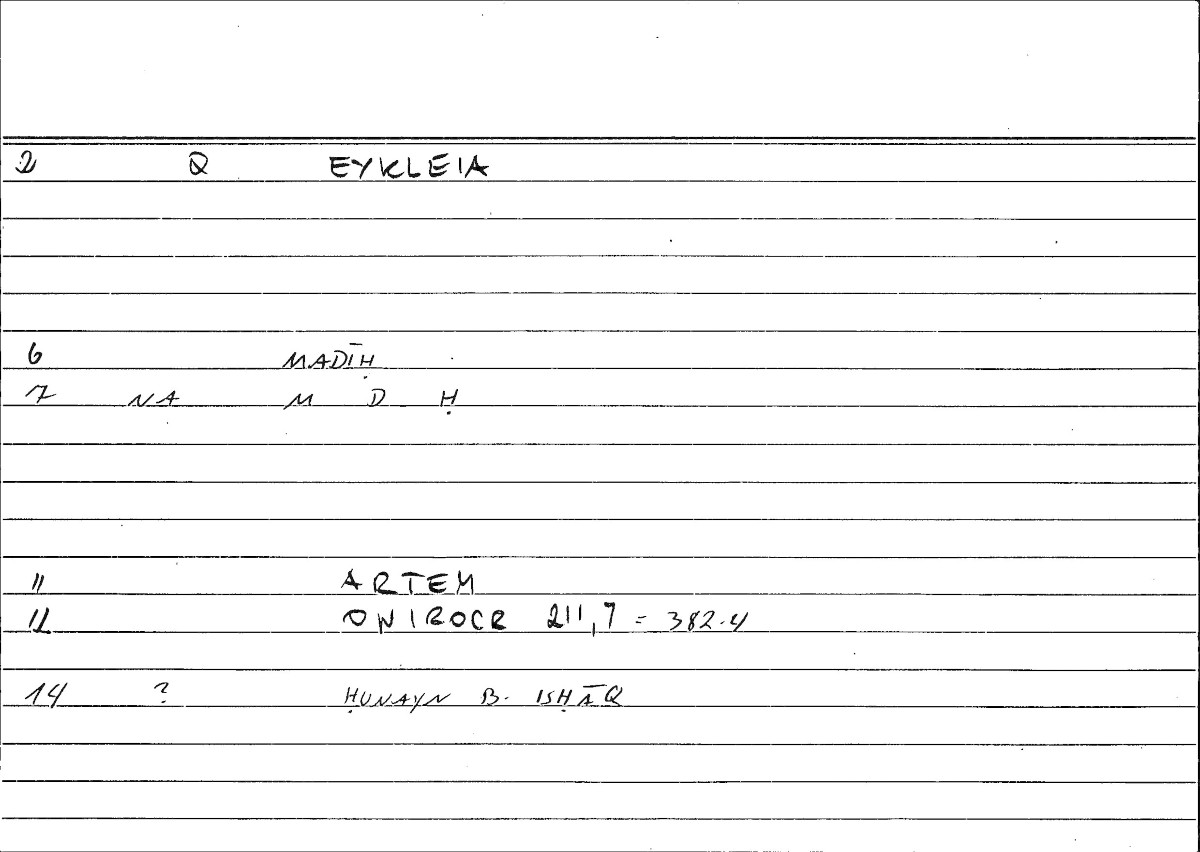 2 Q EYKLEIA
6 MADĪḤ
7 NA M D Ḥ
11 ARTEM
12 ONIROCR 211,7 = 382.4
14 ? ḤUNAYN B. ISḤĀQ